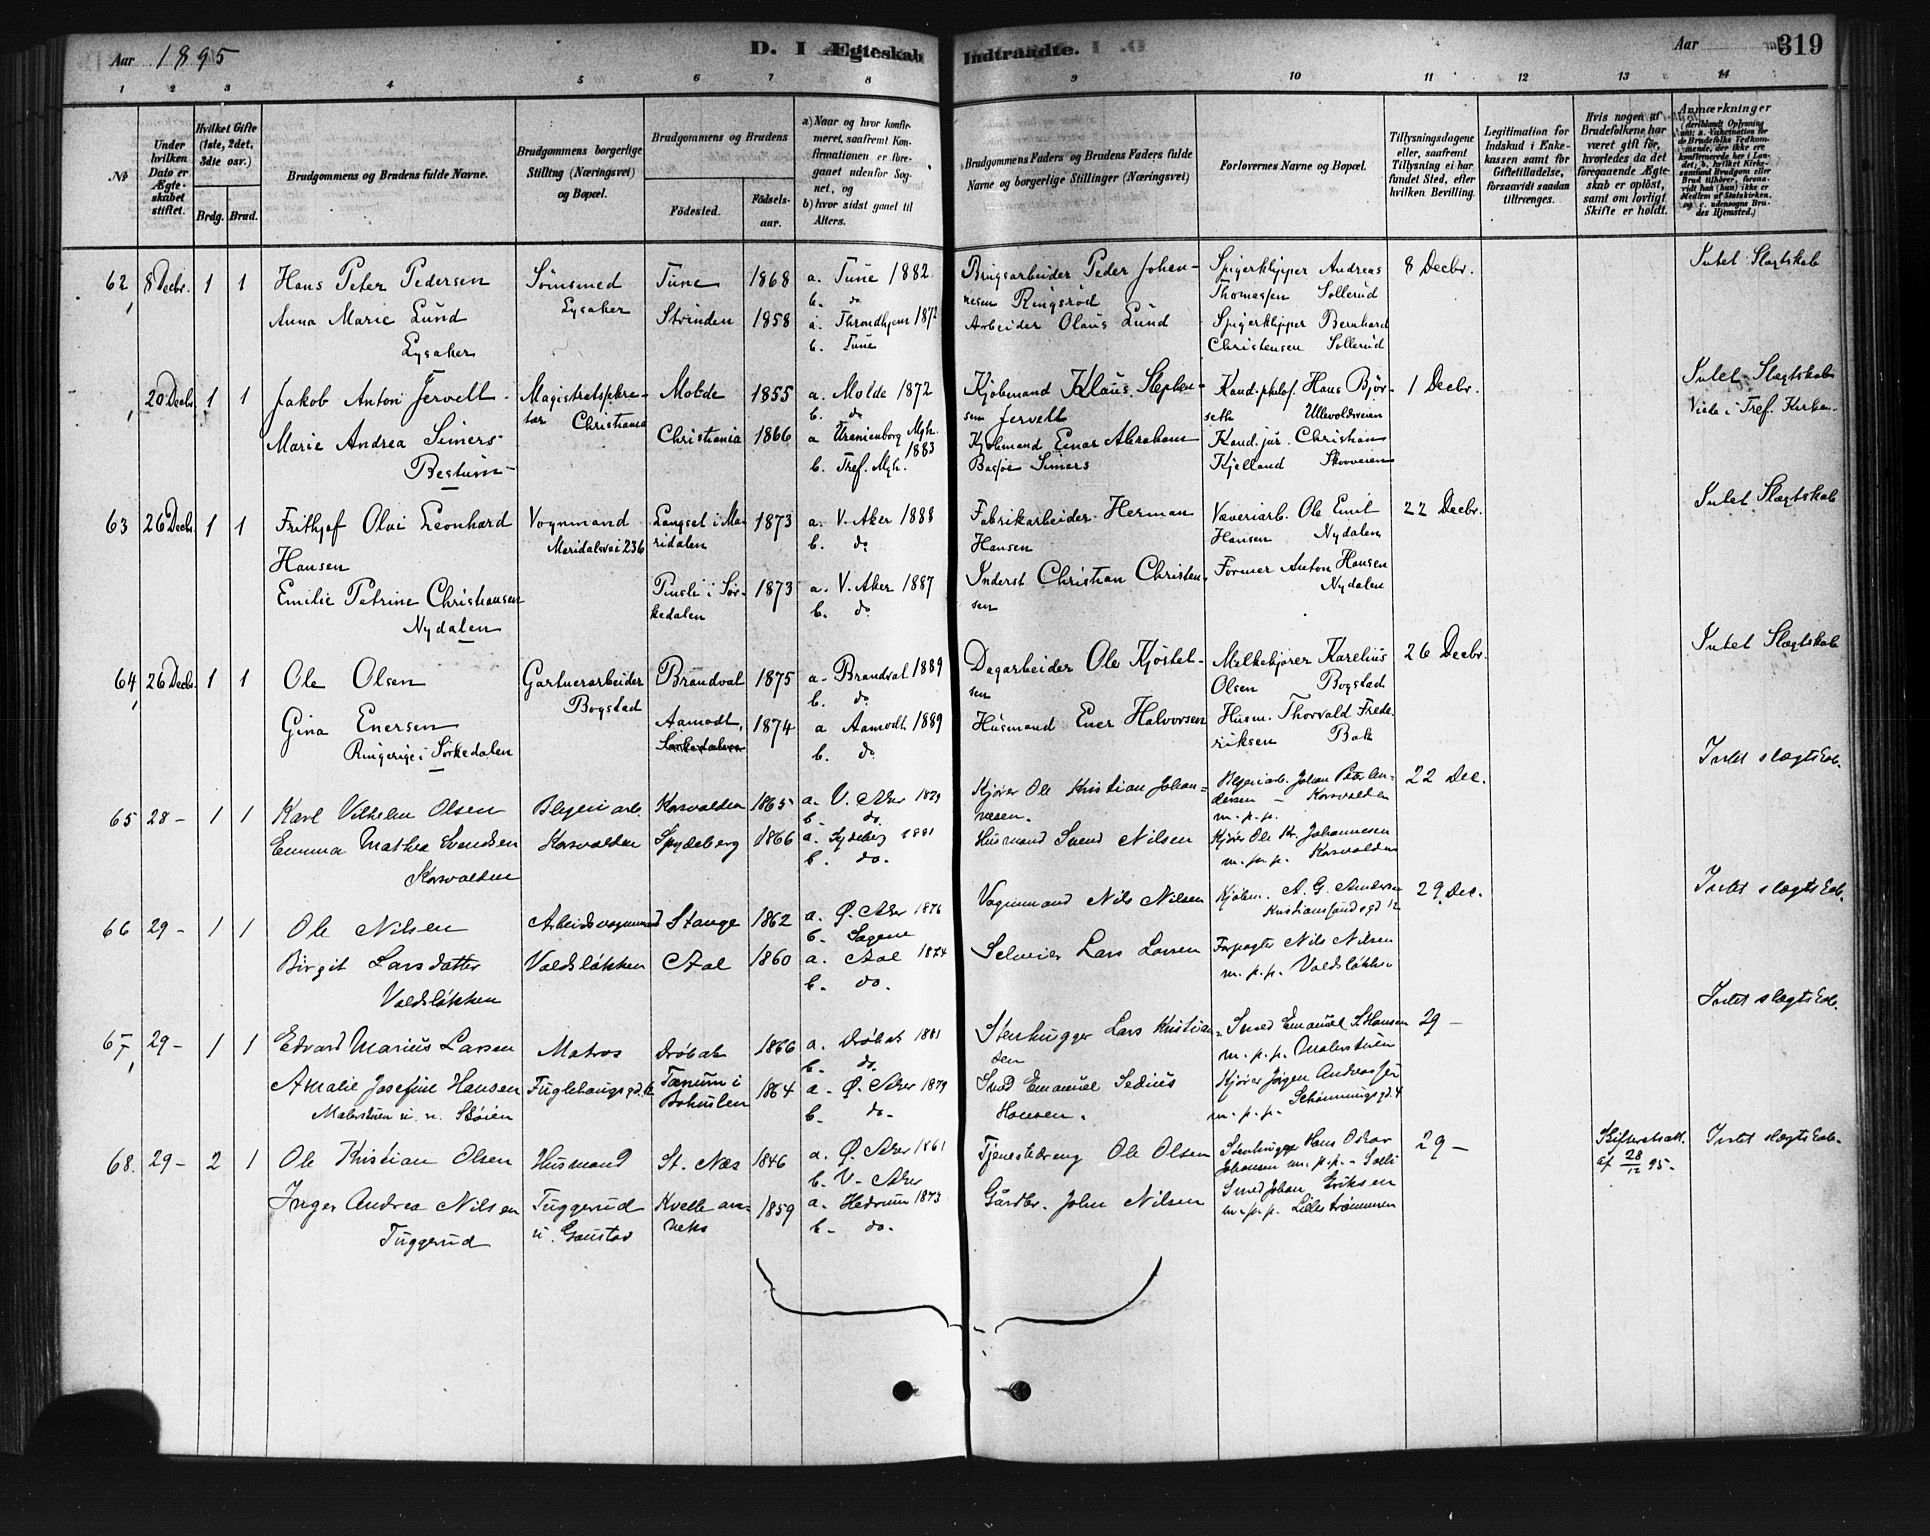 Aar 1895
D. I Ægteskab Indtraadte.
Aar
319
1 2 3 4 5 6 7 8 9 10 11 12 13 14
No
Under hvilken Dato er Ægteskabet stiftet.
Hvilket Gifte (1ste, 2det, 3die osv.)
Brdg. Brud.
Brudgommens og Brudens fulde Navne.
Brudgommens borgerlige Stilling (Næringsvei) og Bopæl.
Brudgommens og Brudens
Födested.
Födselsaar.
a) Naar og hvor konfirmeret, saafremt Konfirmationen er foregaaet udenfor Sognet, og
b) hvor sidst gaaet til Alters.
Brudgommens Faders og Brudens Faders fulde Navne og borgerlige Stillinger (Næringsvei)
Forlovernes Navne og Bopæl.
Tillysningsdagene eller, saafremt Tillysning ei har fundet Sted, efter hvilken Bevilling.
Legitimation for Indskud i Enkekassen samt for Giftetilladelse, forsaavidt saadan tiltrænges.
Hvis nogen af Brudefolkene har været gift før, hvorledes da det foregaaende Ægteskab er oplöst, samt om lovligt Skifte er holdt.
Anmærkninger
62 8 Decbr. 1 1 Hans Peter Pedersen Sömsmed Tune 1868 a. Tune 1882 Brugsarbeider Peder Johan- Spigerklipper Andreas 8 Decbr. Intet Slægtskab
Lysaker b. do nesen Ringsröd Thomassen Sollerud
Anna Marie Lund Strinden 1858 a. Throndhjem 1872 Arbeider Olaus Lund Spigerklipper Bernhard
Lysaker b. Tune Christensen Sollerud
20 Decbr 1 1 Jakob Anton Jervell Magistratssekre- Molde 1855 a. Molde 1872 Kjöbmand Klaus Stephen- Kand. philof. Hans Bjør- 1 Decbr. Intet Slægtskab
tær Christiania b. do sen Jervell seth Ullevoldsveien Viede i Tref. Kirke.
Marie Andrea Simers Christiania 1866 a Uranienborg Mgh. 1883 Kjöbmand Einar Abraham Kand. jur. Christian
Bestum b. Tref. Mgh. Simers Kjelland Skovveien
63 26 Decbr 1 1 Frithjof Olai Leonhard Vognmand Langset i Ma- 1873 a. V. Aker 1888 Fabrikarbeider Herman Væveriarb. Ole Emil 22 Decbr. Intet Slægtskab
Hansen Maridalsvei 236 ridalen b. do Hansen Hansen Nydalen
Emilie Petrine Christiansen i Sör- 1873 a. V. Aker 1887 Inderst Christian Christen- Former Anton Hansen
Nydalen kedalen b. do sen Nydalen
64 26 Decbr. 1 1 Ole Olsen Gartnerarbeider Brandval 1875 a. Brandval 1889 Dagarbeider Ole Kjöstel- Melkekjörer Karelius 26 Decbr. Intet Slægtskab
Bogstad b. do sen Olsen Bogstad
Gina Enersen Aamodt, 1874 a Aamodt 1889 Husmand Ener Halvorsen Husm. Thorvald Frede-
Ringerige i Sörkedalen Sörkedalen b. do riksen Bak
65 28 - 1 1 Karl Vilhelm Olsen Blegeri arb. Korsvolden 1865 a. V. Aker 1879 Kjörer Ole Kristian Johan- Blegeriarb. Johan Peter 22 Dec. Intet slægtskab.
b. do. nesen. Korsvolden m. p. p.
Emma Mathea Svendsen Korsvolden Spydeberg 1866 a. Spydeberg 1881 Husmand Svend Nilsen Kjörer Ole Kr. Johannesen
Korsvolden b. do. m. p. p. Korsvolden
66 29 - 1 1 Ole Nilsen Arbeidsvognmand Stange 1862 a. Ø. Aker 1876 Vognmand Nils Nilsen Kjöbm. A. G. Andersen 29 Dec. Intet slægtskab.
b. Sagene Kristiansundsgd 12
Birgit Larsdatter Voldslökken Aal 1860 a. Aal 1874 Selveier Lars Larsen Forpagter Nils Nilsen
Voldslökken b. do. m. p. p. Voldslökken
67 29 - 1 1 Edvard Marius Larsen Matros Dröbak 1866 a. Dröbak 1881 Stenhugger Lars Kristian- Smed Emanuel S. Hansen 29 - Intet slægtskab.
b. do. sen m. p. p. Malerstuen
Amalie Josefine Hansen Fuglehaugsgd. Tanum i 1864 a. Ø. Aker 1879 Smed Emanuel Sedius Kjörer Jörgen Andreassen
Malerstuen u. n. Sköien Bohuslen b. do- Hansen. m. p. p. Schönningsgd. 4
68. 29 - 2 1 Ole Kristian Olsen Husmand St. Næs 1846 a. Ø. Aker 1861 Tjenestedreng Ole Olsen Stenhugger Hans Oskar 29 - Skifteattest. Intet slægtskab.
b. V. Aker Johansen m. p. p. - Solli af 28/12 95-
Inger Andrea Nilsen Tuggerud Kvelle an- 1859 a. Hedrum 1873 Gårdbr. John Nilsen Smed Johan Eriksen
Tuggerud u. Gaustad neks b. do. m. p. p. Lillestrømmen